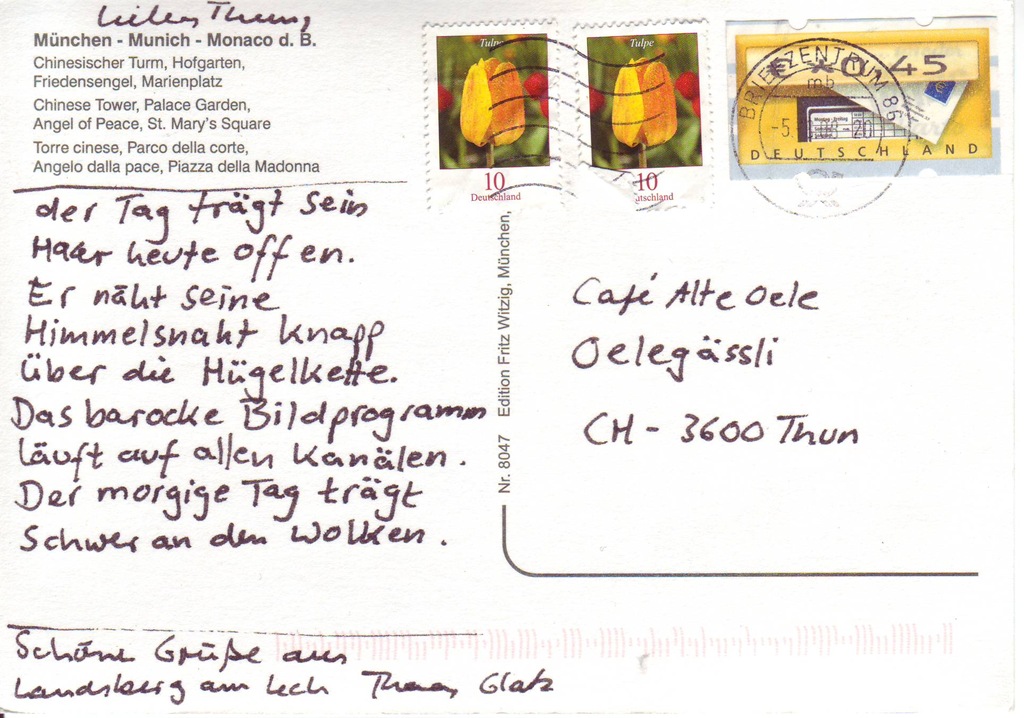 München - Munich - Monaco d. B.
Chinesischer Turm, Hofgarten,
Friedensengel, Marienplatz
Chinese Tower, Palace Garden,
Angel of Peace, St. Mary's Square
Torre cinese, Parco della corte,
Angelo dalla pace, Piazza della Madonna
der Tag trägt sein
Haar heute offen.
Er näht seine
Himmelsnaht knapp
über die Hügelkette.
Das barocke Bildprogramm
läuft auf allen Kanälen.
Der morgige Tag trägt
schwer an den Wolken.
Schöne Grüße aus
Landsberg am Lech Thomas Glatz
Nr. 8047 Edition Fritz Witzig, München,
Tulpe
10
Deutschland
Tulpe
10
utschland
€ *0,45
DEUTSCHLAND
BRIEFZENTRUM 86
mb
Café Alte Oele
Oelegässli
CH - 3600 Thun